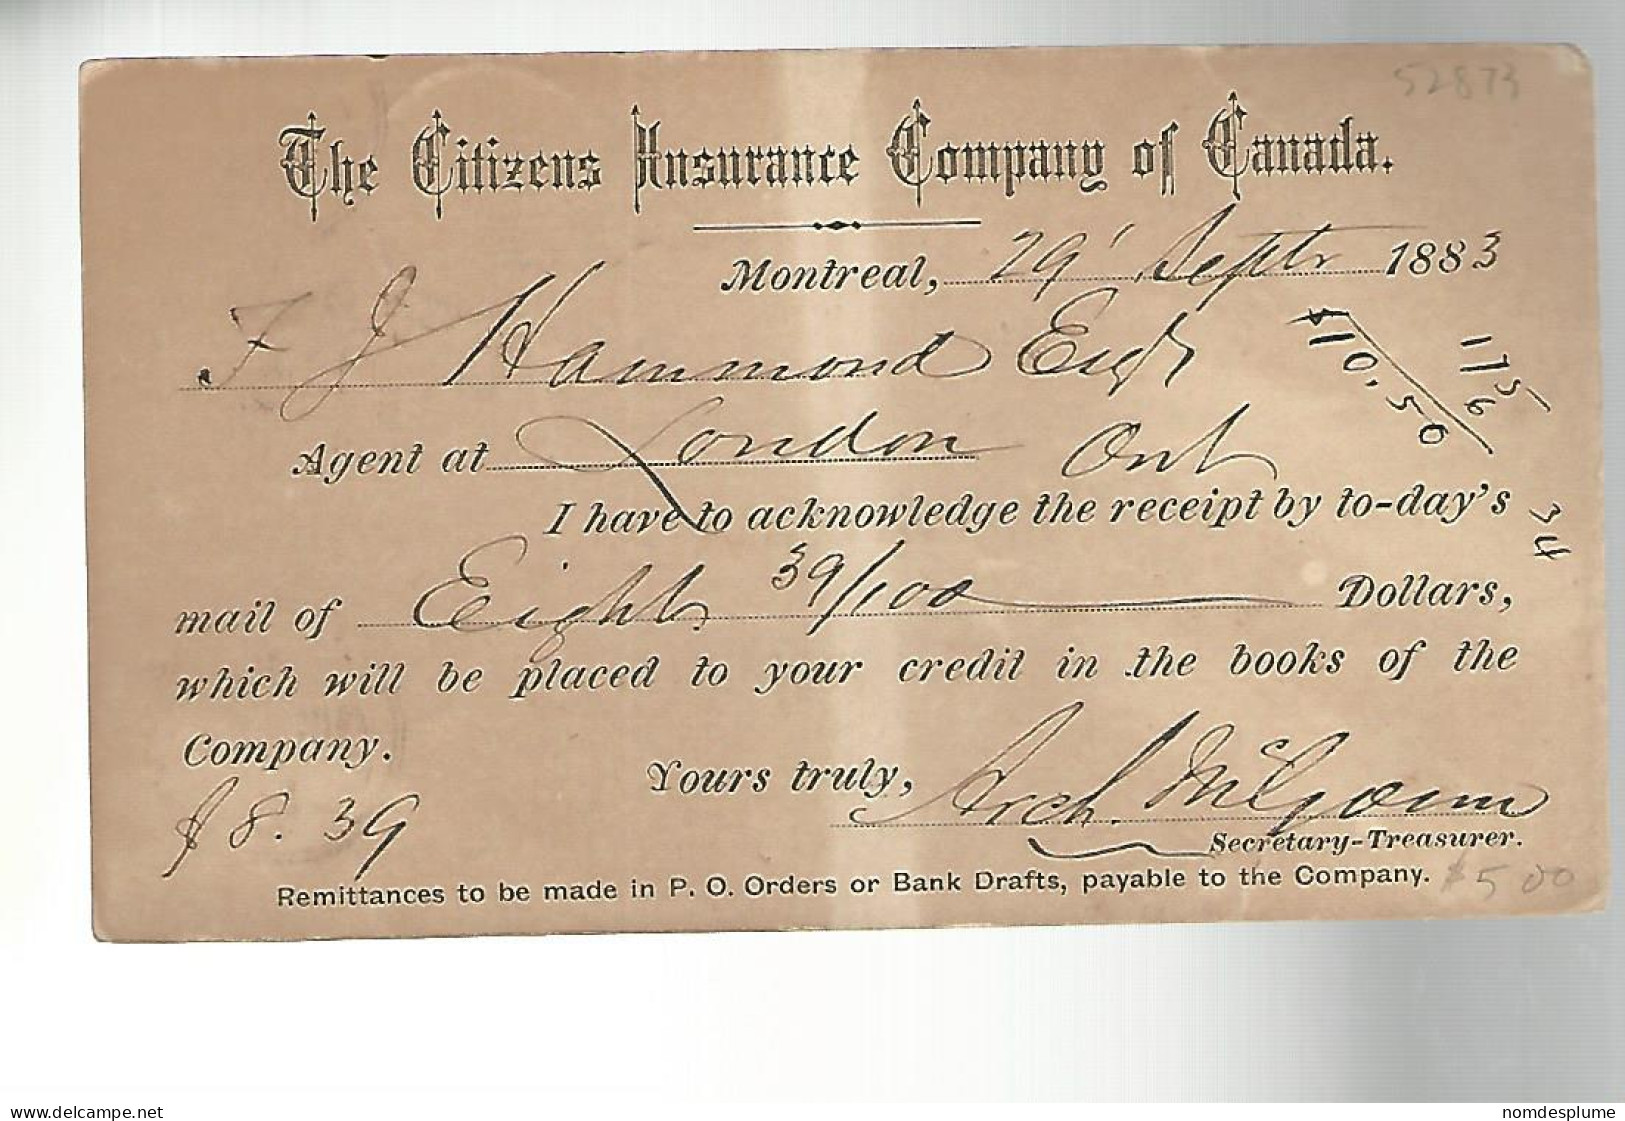 52873
The Citizens Insurance Company of Canada.
Montreal, 29' Septr 1883
F J Hammond Esqr
$10.50
175
6
Agent at London Ont
I have to acknowledge the receipt by to-day's
34
mail of Eight 39/100 Dollars,
which will be placed to your credit in the books of the
Company.
Yours truly,
$8.39
Arch. McGoun
Secretary-Treasurer.
Remittances to be made in P. O. Orders or Bank Drafts, payable to the Company.
$5 00
delcampe.net
nomdesplume